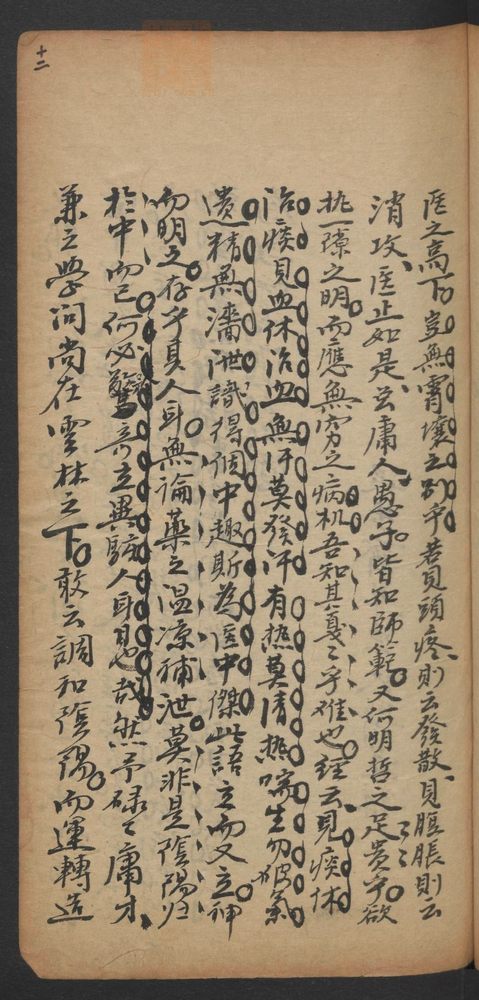 十二
医之高下豈無霄壤之別乎若見頭疼則云發散見腹脹則云
消攻医止如是茲庸人愚子皆知師範又何明哲之足貴乎欲
挑一隙之明而應無窮之病机吾知其戛〻乎难也經云見痰休
治痰見血休治血無汗莫發汗有热莫清热喘生勿破氣
遺精無濇泄識得個中趣斯為医中傑此語立而又立神
而明之存乎其人耳無論藥之温凉補泄莫非是陰陽归
於中而已何必驚奇立異駭人耳目也哉然予碌〻庸才
兼之學问尚在雲林之下敢云調和陰陽而運轉造